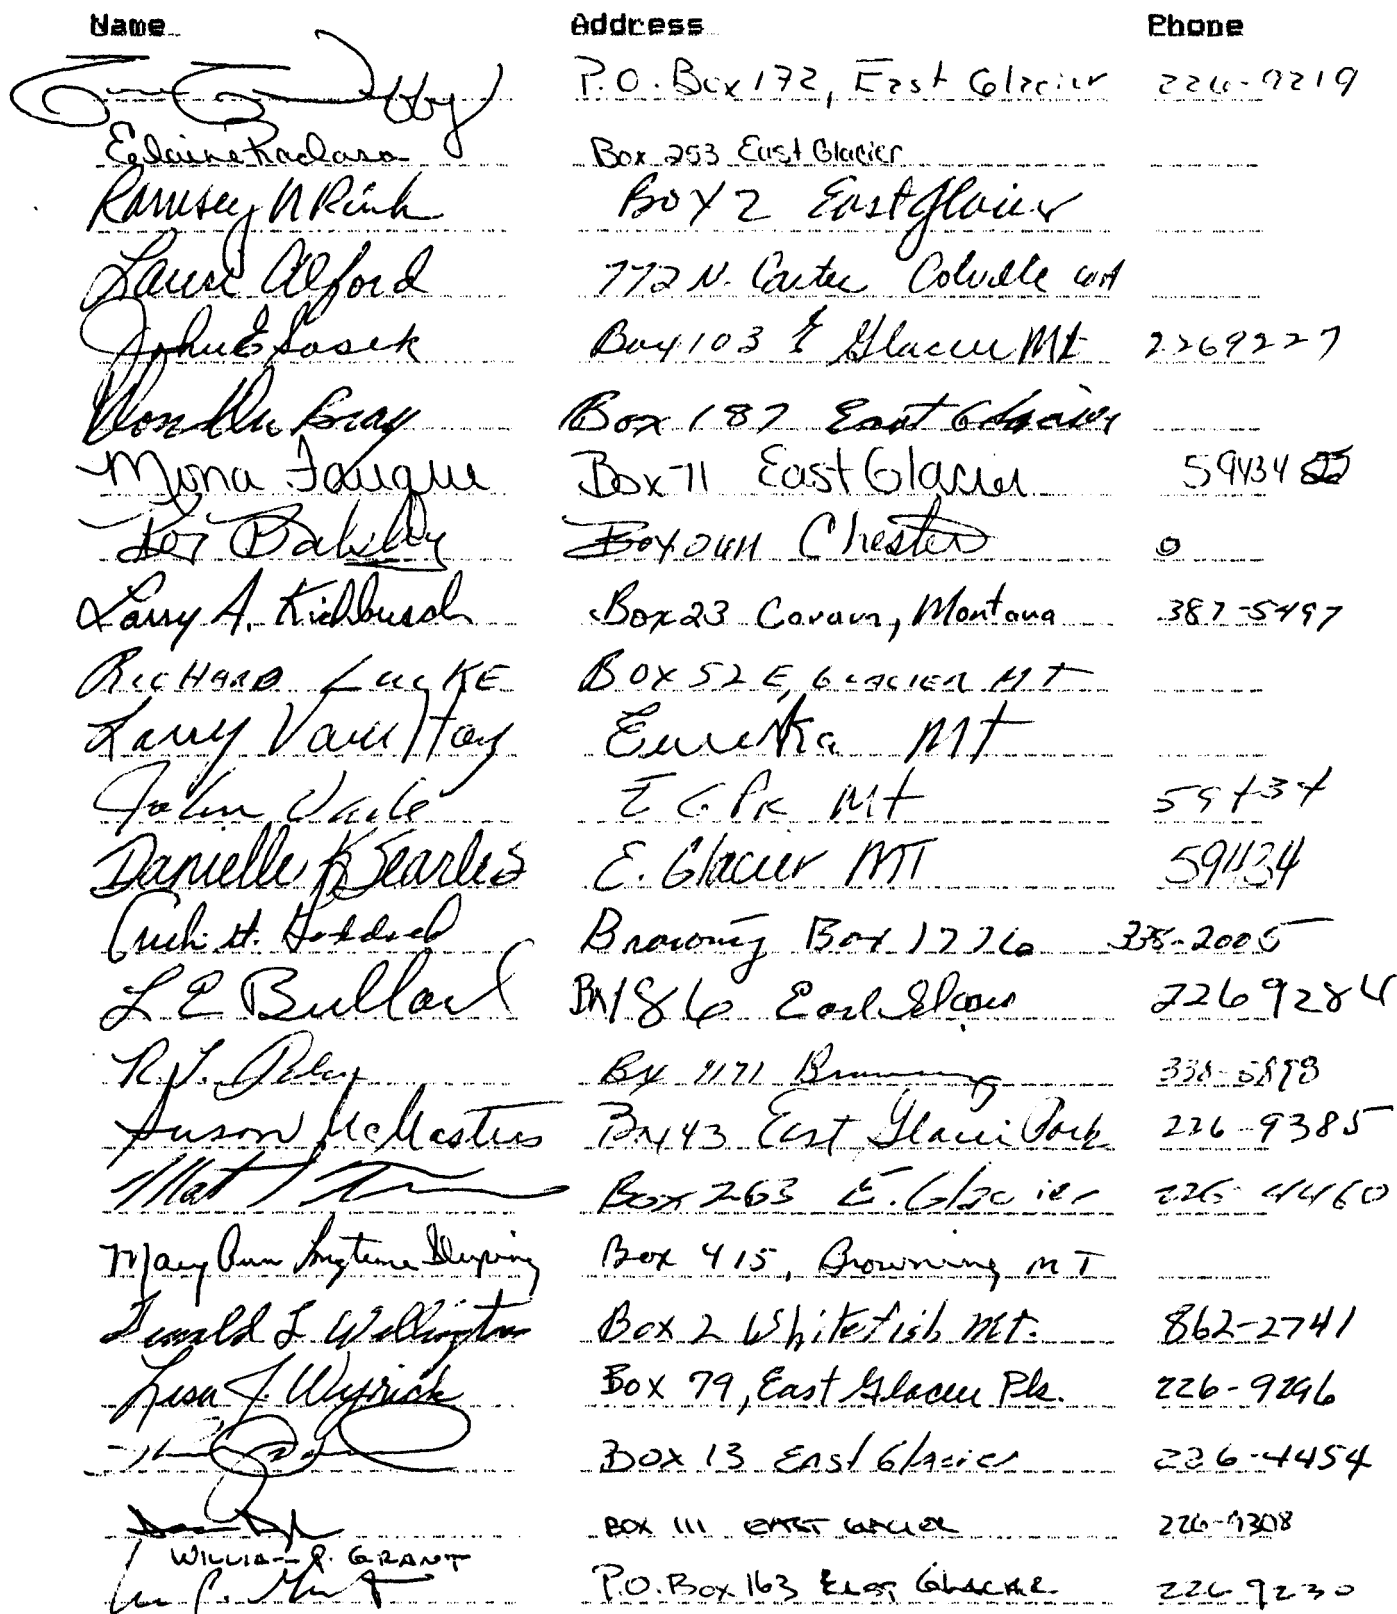 Name Address Phone
P.O. Box 172, East Glacier 226-9219
Elaine Box 253 East Glacier
Ramsey N Rink Box 2 East Glacier
Laurie Alford 772 N. Carter Colville WA
John E Sosek Box 103 E Glacier Mt 2269227
Bray Box 187 East Glacier
Mona Fauque Box 71 East Glacier 59434
Box Chester 0
Larry A. Kichbusch Box 23 Coram, Montana 387-5497
RICHARD LUCKE BOX 52 E GLACIER MT
Larry Eureka MT
John E G Pk Mt 59434
Danielle K Searles E. Glacier MT 59434
H. Browning Box 1226 338-2005
L E Bullard BX 186 East Glacier 2269284
R.J. Bx Browning 338-5898
Susan McMasters Bx 43 East Glacier Park 226-9385
Mat Box 263 E. Glacier 226-4460
Mary Ann Longtime Sleeping Box 415, Browning MT
L Wellington Box 2 Whitefish Mt. 862-2741
Lisa J. Wyrick Box 79, East Glacier Pk. 226-9296
Box 13 East Glacier 226-4454
BOX 111 EAST GLACIER 226-9308
WILLIAM P. GRANT
P.O. Box 163 EAST GLACIER 226 9230